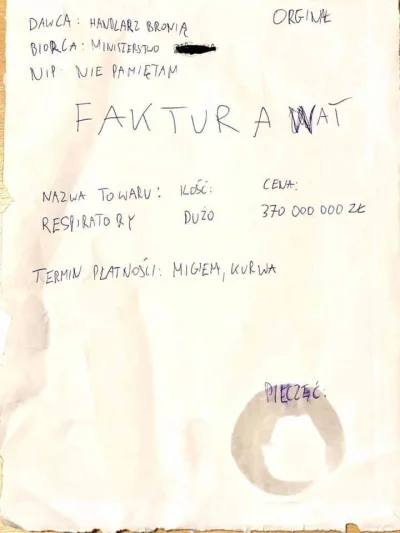 DAWCA: HANDLARZ BRONIĄ
ORGINAŁ
BIORCA: MINISTERSTWO
NIP: NIE PAMIĘTAM
FAKTURA WAT
NAZWA TOWARU: ILOŚĆ: CENA:
RESPIRATORY DUŻO 370 000 000 ZŁ
TERMIN PŁATNOŚCI: MIGIEM, KURWA
PIECZĘĆ: